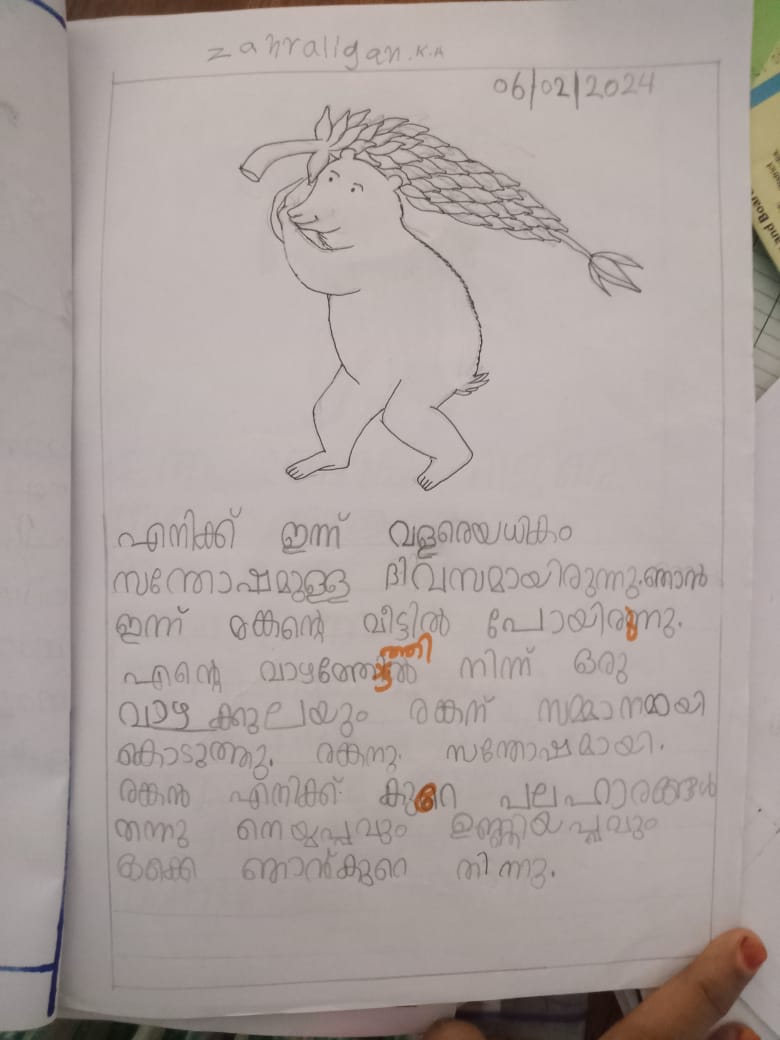 zahraligan.K.A
06/02/2024
എനിക്ക് ഇന്ന് വളരെയധികം
സന്തോഷമുള്ള ദിവസമായിരുന്നു.ഞാൻ
ഇന്ന് രങ്കന്റെ വീട്ടിൽ പോയിരുന്നു.
എന്റെ വാഴത്തോട്ടത്തിൽ നിന്ന് ഒരു
വാഴക്കുലയും രങ്കന് സമ്മാനമായി
കൊടുത്തു. രങ്കനു സന്തോഷമായി.
രങ്കൻ എനിക്ക് കുറെ പലഹാരങ്ങൾ
തന്നു നെയ്യപ്പവും ഉണ്ണിയപ്പവും
ഒക്കെ ഞാൻകുറെ തിന്നു.
and Boar